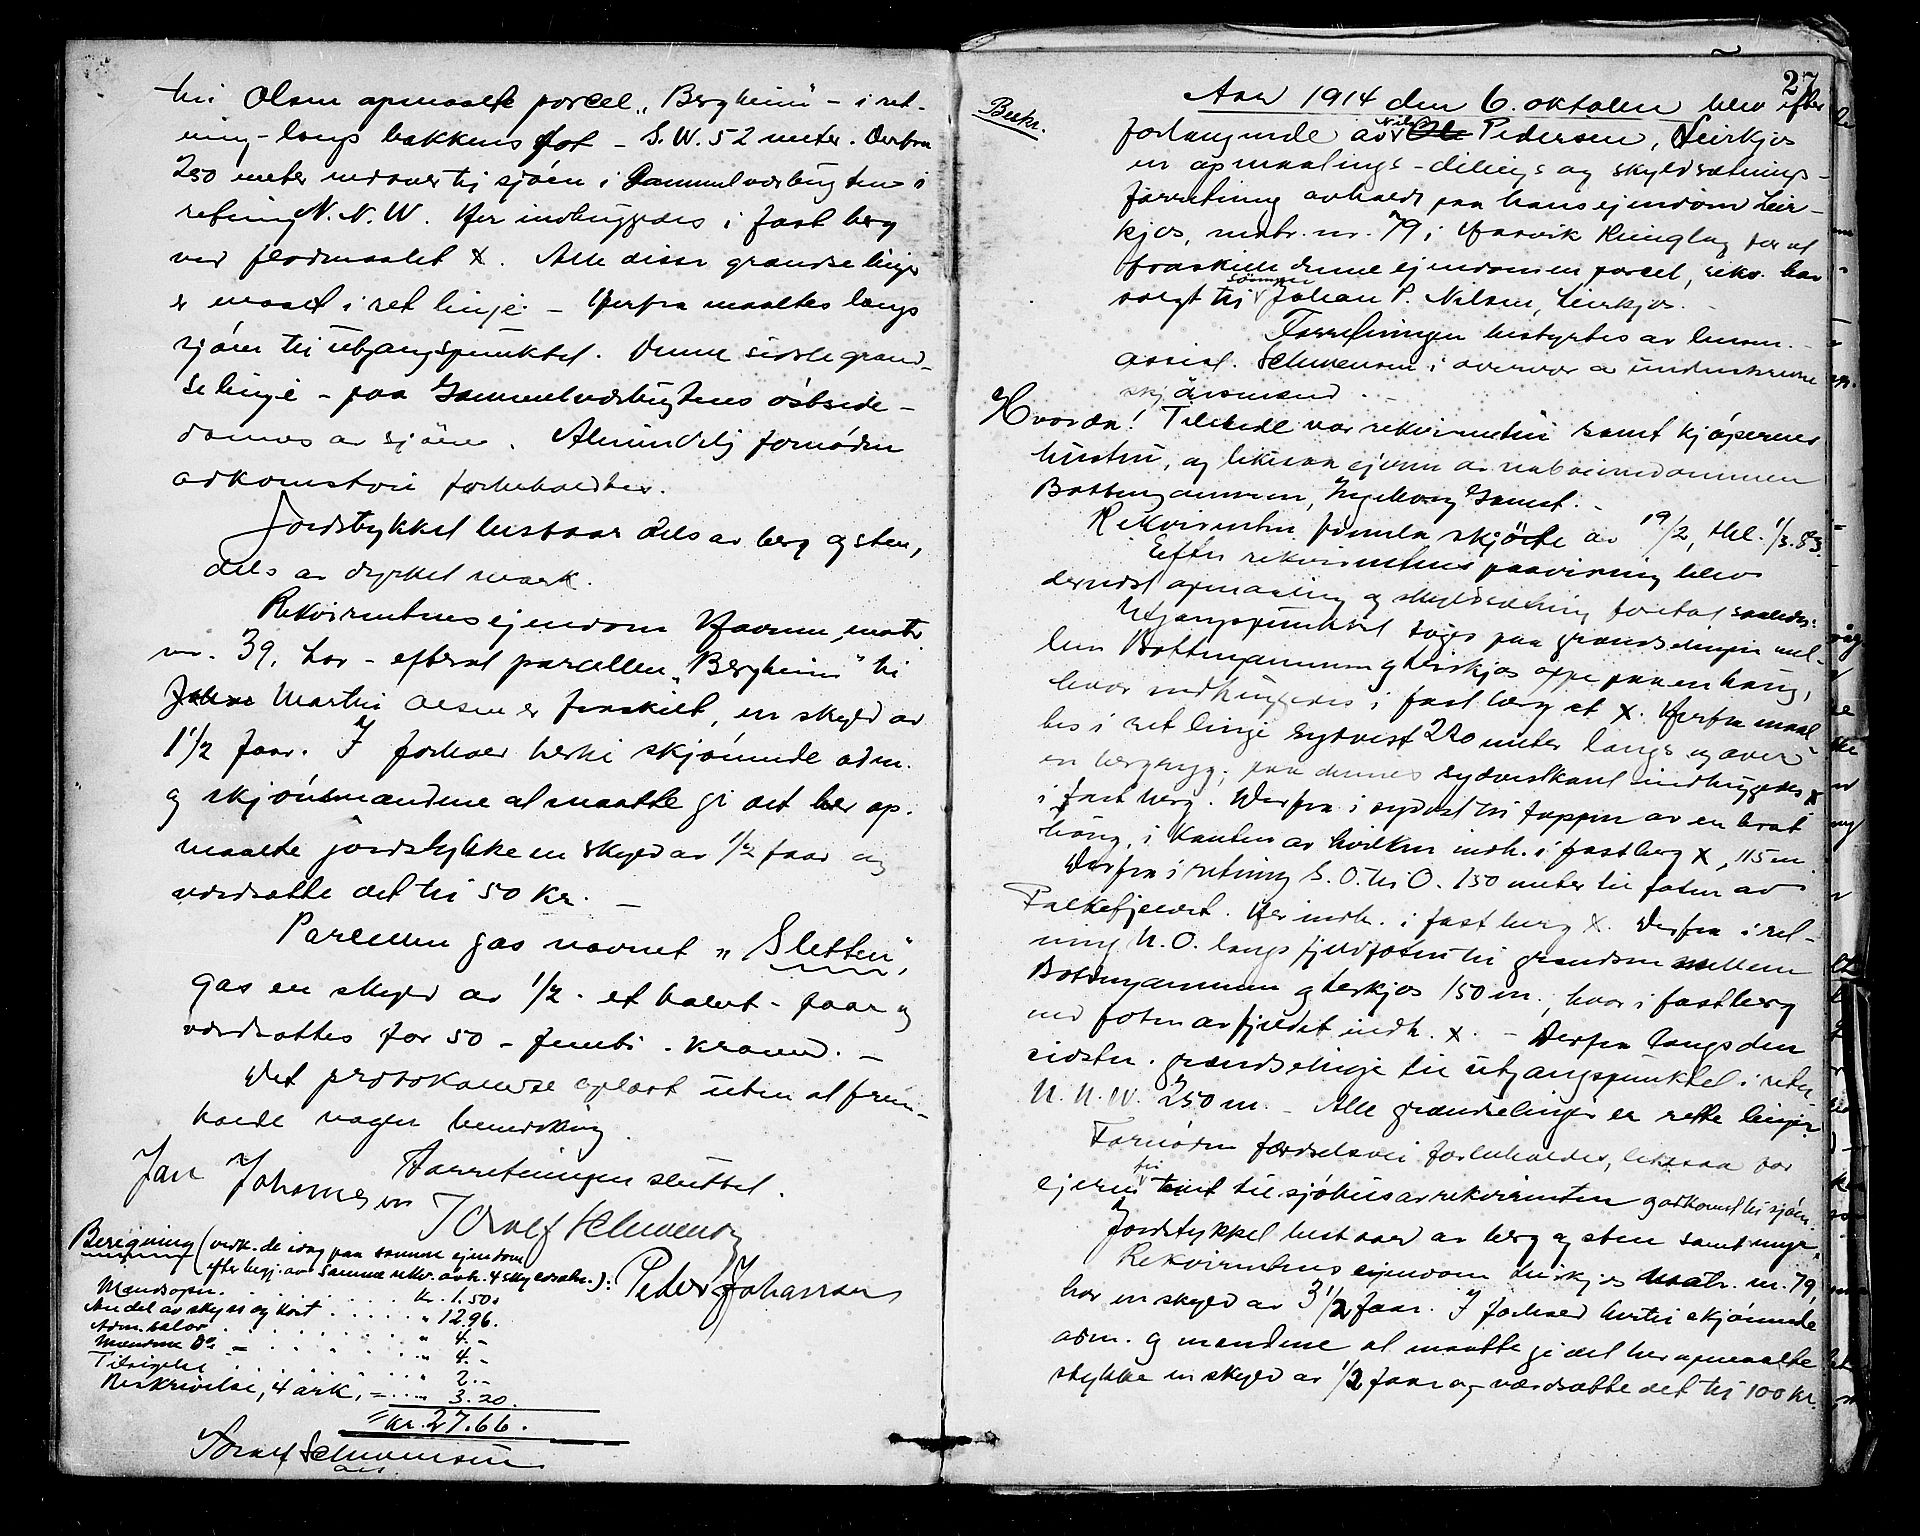 tin Olsen opmaalte parcel „Bergheim" – i ret-
ning – langs bakkens fot – S.W. 52 meter. Derfra
250 meter nedover til sjøen i Gammelværbugten i
retning N.N.W. Her indhuggedes i fast berg
ved flodmaalet X. Alle disse grændselinjer
er maalt i ret linje. – Herfra maaltes langs
sjøen til utgangspunktet. Denne sidste grænd-
selinje – paa Gammelværbugtens østside –
dannes av sjøen. Almindelig fornøden
adkomstvei forbeholdtes.
Jordstykket bestaar dels av berg og sten,
dels av dyrket mark.
Rekvirentens ejendom Havnnes, matr.
nr. 39, har – efterat parcellen „Bergheim" til
Martin Olsen er fraskilt, en skyld av
1 1/2 faar. I forhold hertil skjønnede adm.
og skjønsmændene at maatte gi det her op-
maalte jordstykke en skyld av 1/2 faar og
værdsatte det til 50 kr. –
Parcellen gas navnet „Sletten",
gas en skyld av 1/2 – et halvt – faar og
værdsattes for 50 – femti – kroner. –
Det protokollerte oplæst uten at frem-
kalde nogen bemerkning.
Forretningen sluttet.
Jan Johannesen
Torolf Schwensen
Peder Johansen
Beregning (verk. de idag paa samme ejendom
efter begj. av samme rekv. avh. 4 skyldsætn.):
Mændsopn. . . . . . kr. 1.50.
Andel av skyss og kost . . . . „ 12.96.
Adm. salær . . . . . „ 4.–
Mændene Do. – . . . . „ 4.–
Tilsigelse . . . . . „ 2.–
Beskrivelse, 4 ark, = . . . „ 3.20.
kr. 27.66.
Torolf Schwensen
ass.
27
Beskr.
Aar 1914 den 6. oktober blev efter
forlangende av Nils Pedersen, Leirkjos
en opmaalings – delings og skyldsætnings-
forretning avholdt paa hans ejendom Leir-
kjos, matr. nr. 79 i thinglag for at
fraskille denne ejendom en parcel, rekv. har
solgt til sønnen Johan P. Nilsen, Leirkjos.
Forretningen bestyrtes av lensm.
assist. Schwensen i overvær av underskrevne
skjønsmænd. –
Hvorda! Tilstede var rekvirenten samt kjøperens
hustru, og likesaa ejeren av naboeiendommen
Ingeborg
Rekvirenten fremla skjøte av 19/2, thl. 1/3. 83.
Efter rekvirentens paavisning blev
dernæst opmaaling og skyldsætning foretat saaledes:
Utgangspunktet toges paa grændselinjen mel-
lem og Leirkjos oppe paa en haug,
hvor indhuggedes i fast berg et X. Herfra maal-
tes i ret linje sydvest 220 meter langs og over
en bergrygg; paa dennes sydvestkant indhuggedes X
i fast berg. Derfra i sydost til toppen av en brat
haug, i kanten av hvilken indh. i fast berg X, 115 m.
Derfra i retning S.O. til O. 150 meter til foten av
Falkefjeldet. Her indh. i fast berg X. Derfra i ret-
ning N.O. langs fjeldfoten til grændsen mellem
og Leirkjos 150 m., hvor i fast berg
ved foten av fjeldet indh. X. – Derfra langs den
sidstn. grændselinje til utgangspunktet i retn.
N.N.W. 250 m. – Alle grændselinjer er rette linjer.
Fornøden færdselsvei forbeholdes, likesaa for
ejeren til sjøhus av rekvirenten og adkomst til sjøen.
Jordstykket bestaar av berg og sten samt myr.
Rekvirentens ejendom Leirkjos matr. nr. 79,
har en skyld av 3 1/2 faar. I forhold hertil skjønnede
adm. og mændene at maatte gi det her opmaalte
stykke en skyld av 1/2 faar og værdsatte det til 100 kr.